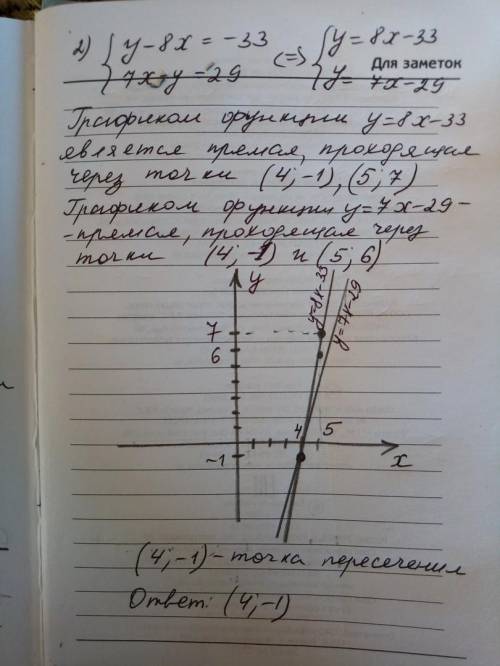 2) { y-8x = -33 <=> { y = 8x-33
Для заметок
7x-y = 29 y = 7x-29
Графиком функции y=8x-33
является прямая, проходящая
через точки (4;-1), (5; 7)
Графиком функции y=7x-29-
-прямая, проходящая через
точки (4; -1) и (5; 6)
y
y=8x-33
y=7x-29
7
6
4 5
-1
x
(4;-1)-точка пересечения
Ответ: (4;-1)